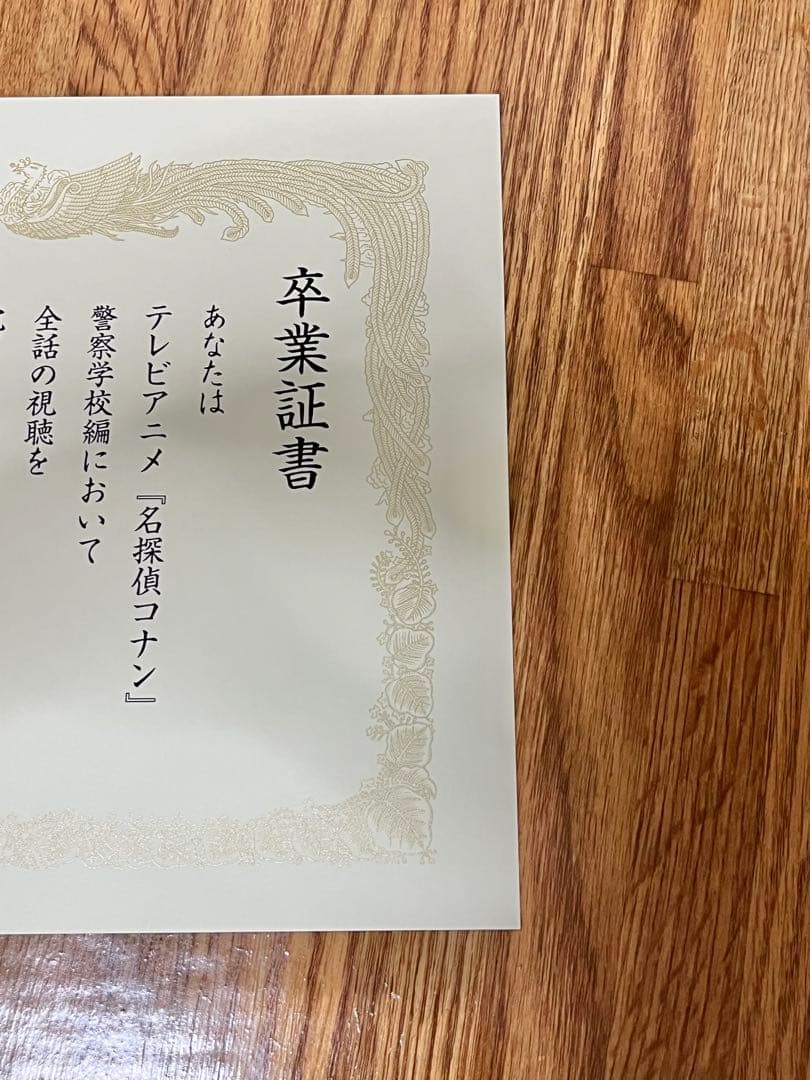 卒業証書
あなたは
テレビアニメ『名探偵コナン』
警察学校編において
全話の視聴を